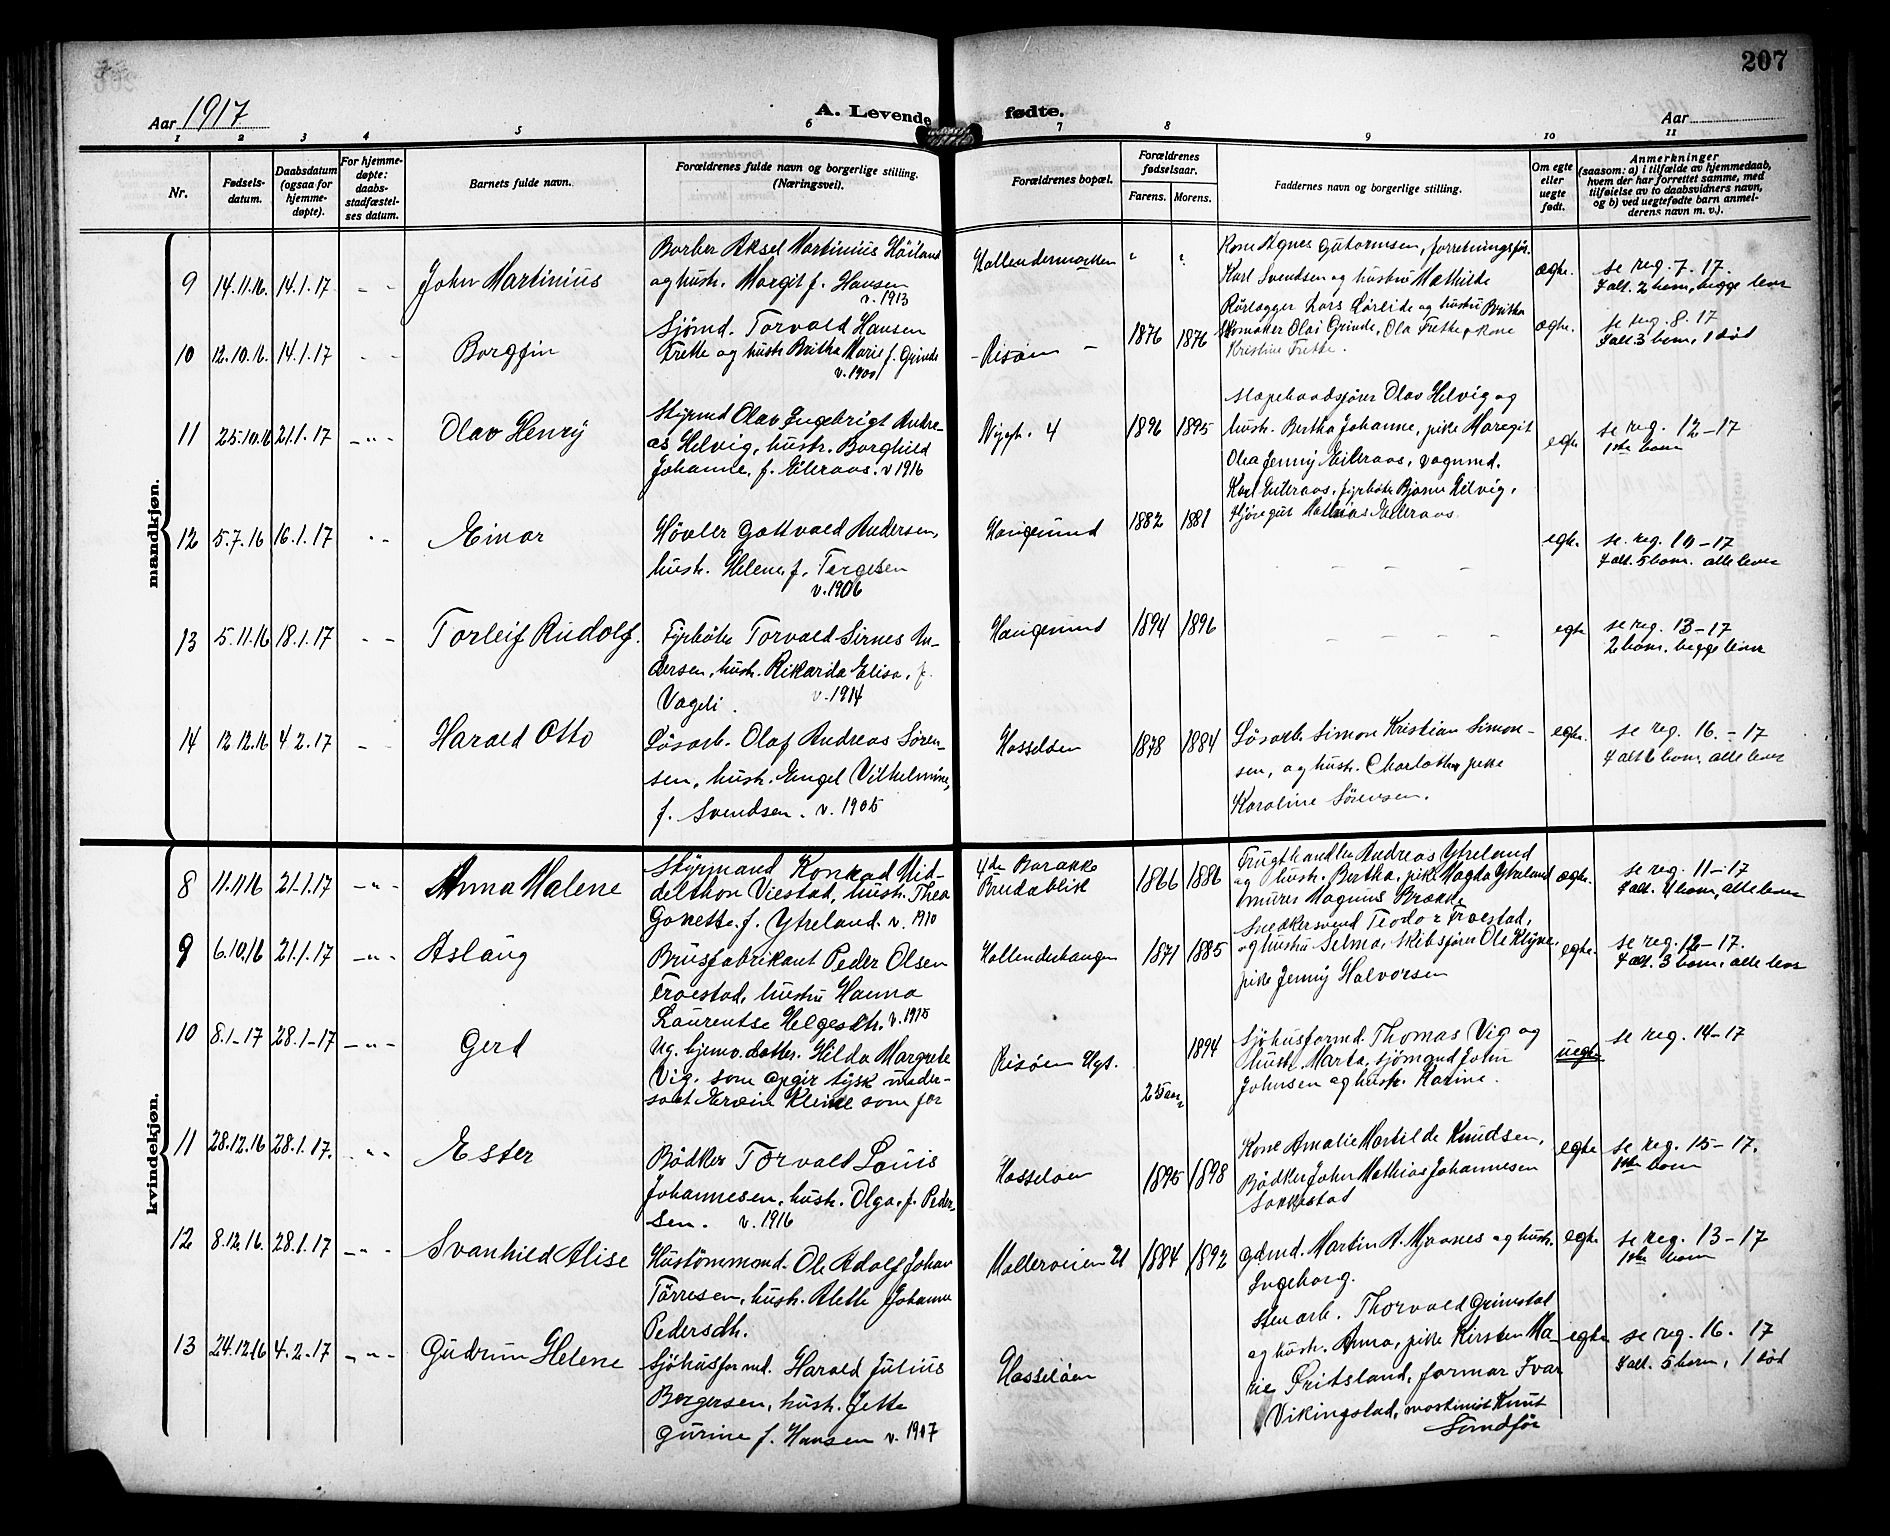 207
Aar 1917
A. Levende fødte.
Aar
1 2 3 4 5 6 7 8 9 10 11
Nr.
Fødsels-
datum.
Daabsdatum
(ogsaa for
hjemme-
døpte).
For hjemme-
døpte:
daabs-
stadfæstel-
ses datum.
Barnets fulde navn.
Forældrenes fulde navn og borgerlige stilling.
(Næringsvei).
Forældrenes bopæl.
Forældrenes
fødselsaar.
Farens. Morens.
Faddernes navn og borgerlige stilling.
Om egte
eller
uegte
født.
Anmerkninger
(saasom: a) i tilfælde av hjemmedaab,
hvem der har forrettet samme, med
tilføielse av to daabsvidners navn,
og b) ved uegtefødte barn anmel-
derens navn m. v.).
mandkjøn.
9 14.11.16. 14.1.17 - - John Martinius
Barber Aksel Martinius Höiland
og hustr. Margit f. Hansen
v. 1913
Kone Agnes Gutormsen, forretningsfør.
Karl Svendsen og hustru Mathilde
ægte.
se reg. 7. 17.
I alt. 2 barn, begge lever
10 12.10.16. 14.1.17 - - Borgfin
Sjömd. Torvald Hansen
Frette og hustr. Britha Marie f. Grinde
v. 1900
- Risöen -
1876 1876
Rörlægger Lars og hustru Britha
Olai Grinde, Ola Frette, Kone
Kristine Frette.
ægte.
se reg. 8. 17
I alt 3 barn, 1 död
11 25.10.16 21.1.17 - " - Olav Henry
Styrmd Olav Ingebrigt Andre-
as Helvig, hustr. Borghild
Johanne, f. Eileraas. v 1916
Nygt. 4
1896 1895
Olav Helvig og
hustr. Bertha Johanne, pike Maregit
Olea Jenny Eileraas, vognmd.
Karl Eileraas, fyrböter Bjarne Helvig,
Sjöregut Mathias Eileraas
egte
se reg. 12-17
1ste barn
12 5.7.16 16.1.17 " - Einar
Hövler Gottvald Andersen,
hustr. Helene, f. Torgesen
v. 1906
Haugesund
1882 1881
- - - -
egte.
se reg. 10-17
I alt. 5 barn. alle lever
13 5.11.16 18.1.17 - - Torleif Rudolf.
Fyrböter Torvald Sirnes An-
dersen, hustr. Rikarda Elisa, f.
Vageli. v. 1914
Haugesund
1894 1896
- - - -
egte
se reg. 13-17
2 barn. begge lever
14 12.12.16 4 2.17 - - Harald Otto
Lösarb. Olaf Andreas Sören-
sen, hustr. Engel Vilhelmine,
f. Svendsen. v. 1905
Hasselöen
1878 1884
Lösarb. Simon Kristian Simon-
sen, og hustr. Charlotte, pike
Karoline Sörensen.
egte.
se reg. 16.-17
I alt 6 barn, alle lever
kvindekjøn.
8 11.11.16 21.1.17 - " - Anna Malene
Styrmand Konrad Mid-
delthon Viestad, hustr. Thea
Gonette. f. Ytreland. v. 1910
4de Barakke
Breidablik
1866 1886
Frugthandler Andreas Ytreland
og hustr. Bertha, pike Magda Ytreland
murer Magnus Brække
ægte.
se reg. 11-17
I alt. 4 barn, alle lever
9 6.10.16 21.1.17 - " - Aslaug
Brusfabrikant Peder Olsen
Troestad, hustru Hanna
Laurentse Helgesdtr. v. 1915
Hollenderhaugen
1871 1885
Snedkersvend Teodor Troestad,
og hustru Selma, skibsförer Ole Klyve,
pike Jenny Halvorsen
egte.
se reg. 12-17.
I alt. 3 barn, alle lever
10 8.1-17 28.1-17 - " - Gerd
Ug. hjemv. datter. Hilda Margrete
Vig. som opgir tysk under-
saat Erwin Kleine som far
Risöen Hgs.
25 aar 1894
Sjöhusformd. Thomas Vig og
hustr. Marta, sjömand John
Johnsen og hustr. Karine.
uegte
se reg. 14-17
11 28.12.16 28.1.17. - " - Ester
Bödker Torvald Louis
Johannesen, hustr. Olga. f. Peder-
sen. v. 1916
Hasselöen
1895 1898
Kone Amalie Martilde Knudsen,
Bödker John Mathias Johannesen
Sakkestad
egte
se reg. 15-17.
1ste barn
12 8.12.16. 28.1.17 - " - Svanhild Alise
Hustömmermd. Ole Adolf Johan
Törresen, hustr. Alette Johanne
Pedersdtr.
Mølleveien 21
1884 1892
Gdmd. Martin A. og hustr.
Ingeborg.
egte
se reg. 13-17
1ste barn
13 24.12.16 4.2.17 - " - Gudrun Helene
Sjöhusformd. Harald Julius
Borgersen, hustr. Jette
Gurine f. Hansen v. 1907
Hasselöen
Stenarb. Thorvald Grimstal
og hustr. Anna, pike Kirsten Ma-
rie Fritsland, formar Ivar
Vikingstad, maskinist Knut
Sandfør
egte
se reg. 16. 17
I alt. 5 barn, 1 död